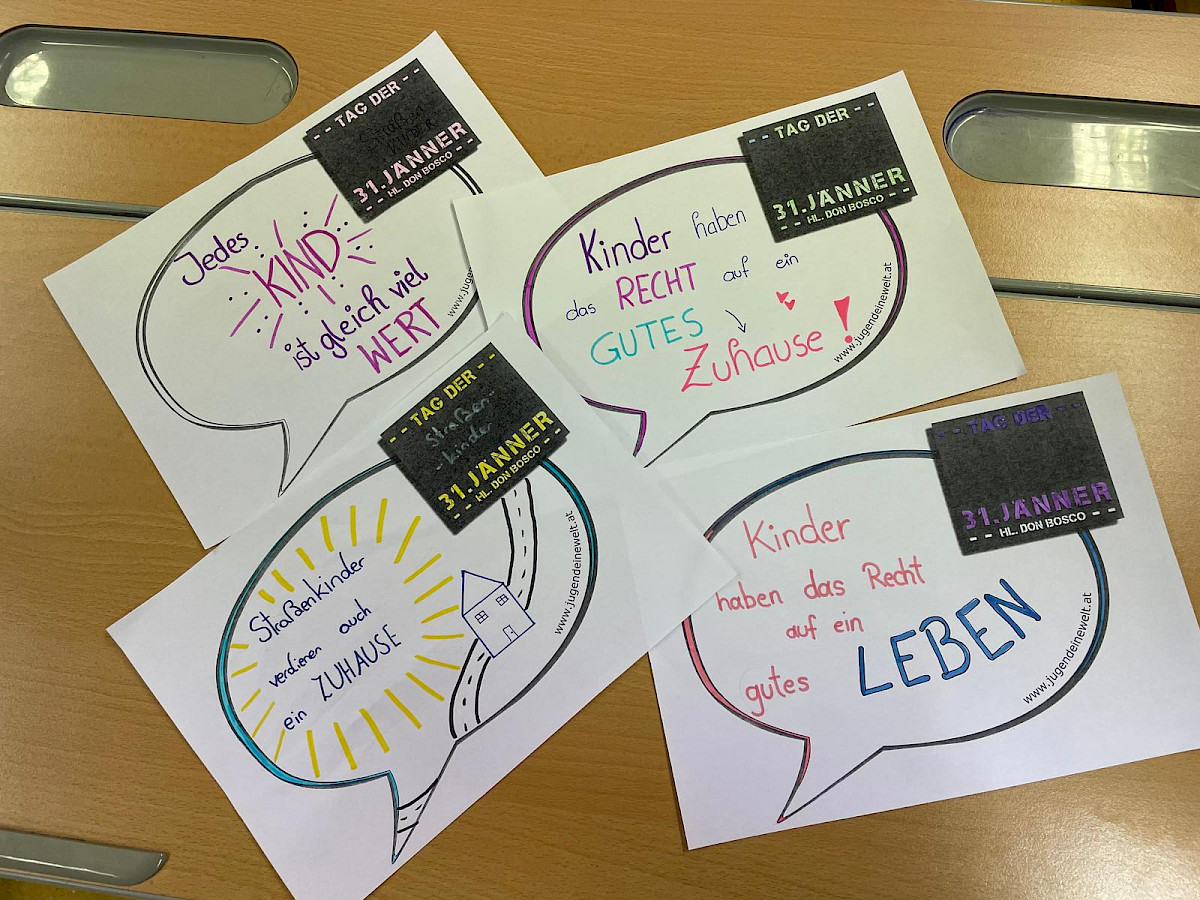 -- TAG DER --
Straßen
kinder
31.JÄNNER
-- HL. DON BOSCO --
Jedes
KIND
ist gleich viel
WERT
www.jugen
-- TAG DER --
31.JÄNNER
-- HL. DON BOSCO --
Kinder haben
das RECHT auf ein
GUTES
Zuhause!
www.jugendeinewelt.at
-- TAG DER --
Straßen-
-kinder
31.JÄNNER
-- HL. DON BOSCO --
Straßenkinder
verdienen auch
ein ZUHAUSE
www.jugendeinewelt.at
-- TAG DER --
31.JÄNNER
-- HL. DON BOSCO --
Kinder
haben das Recht
auf ein
gutes LEBEN
www.jugendeinewelt.at